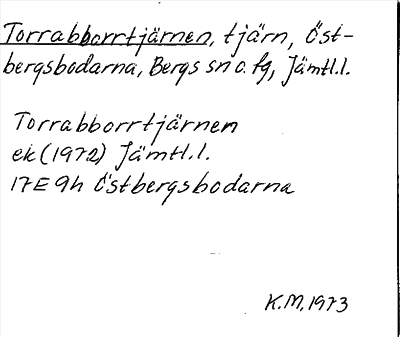 Torrabborrtjärnen, tjärn, Öst-
bergsbodarna, Bergs sn o. fg, Jämtl.l.
Torrabborrtjärnen
ek (1972) Jämtl.l.
17E 9h Östbergsbodarna
K.M. 1973